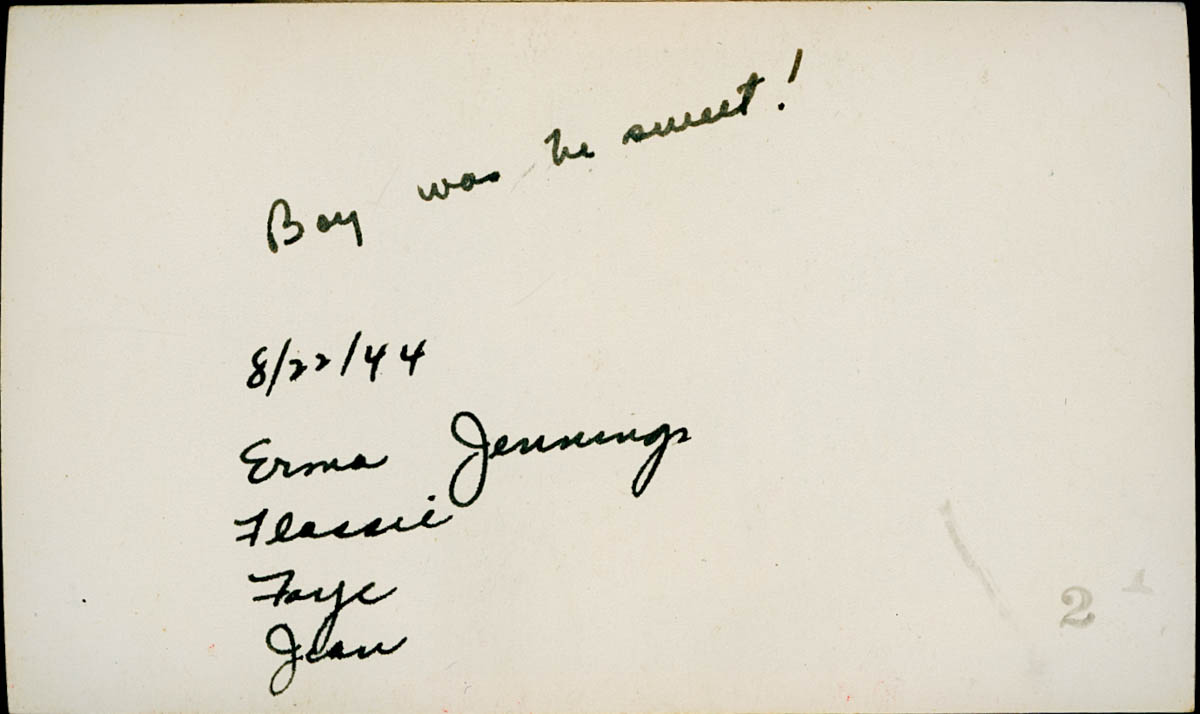 Boy was he sweet!
8/22/44
Erma Jennings
Flassie
Faye
Jean
2